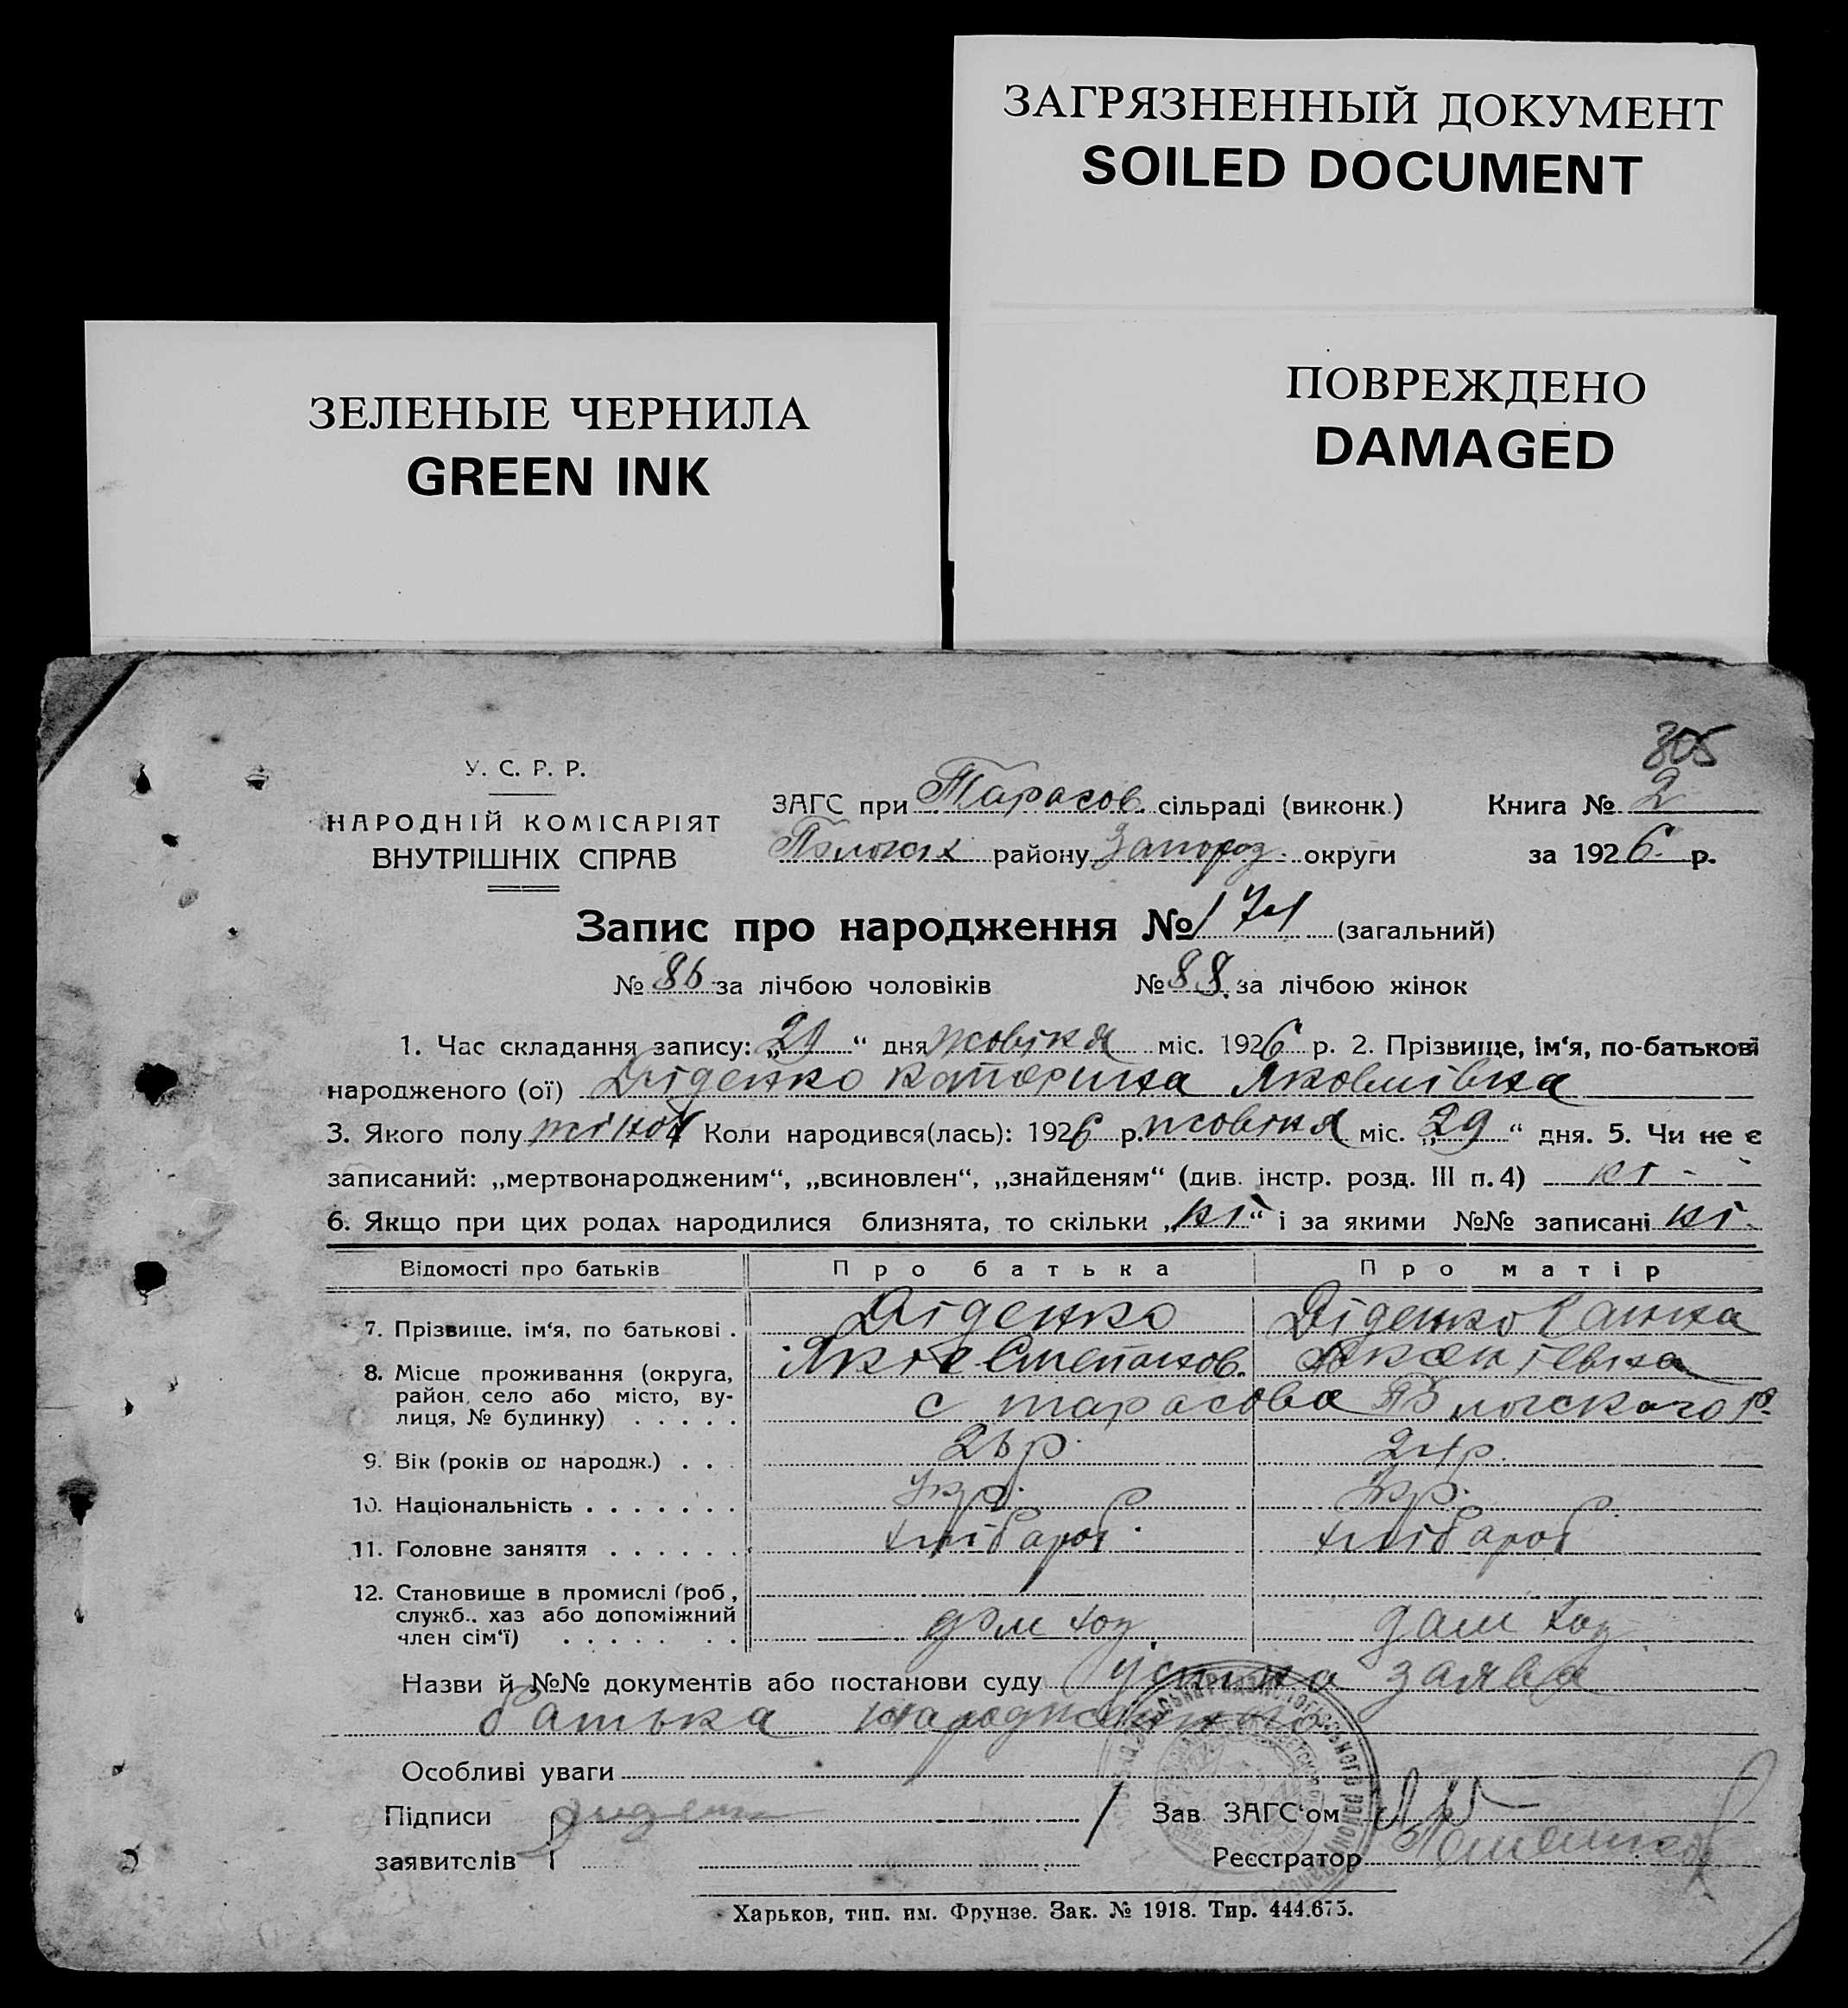 ЗАГРЯЗНЕННЫЙ ДОКУМЕНТ
SOILED DOCUMENT
ЗЕЛЕНЫЕ ЧЕРНИЛА
GREEN INK
ПОВРЕЖДЕНО
DAMAGED
305
У. С. Р. Р.
НАРОДНІЙ КОМІСАРІЯТ
ВНУТРІШНІХ СПРАВ
ЗАГС при Тарасов. сільраді (виконк.) Книга № 2
району Запороз. округи за 1926 р.
Запис про народження № 174 (загальний)
№ 86 за лічбою чоловіків № 88 за лічбою жінок
1. Час складання запису: „29“ дня жовтня міс. 1926 р. 2. Прізвище, ім‘я, по-батькові
народженого (ої) Діденко Катерина Яковлівна
3. Якого полу жіноч 4 Коли народився(лась): 1926 р. жовтня міс. „29“ дня. 5. Чи не є
записаний: „мертвонародженим“, „всиновлен“, „знайденям“ (див. інстр. розд. III п. 4) ні
6. Якщо при цих родах народилися близнята, то скільки „ні“ і за якими №№ записані ні
Відомості про батьків Про батька Про матір
7. Прізвище, ім‘я, по батькові . Діденко Діденко Ганна
Степанов.
8. Місце проживання (округа,
район, село або місто, ву-
лиця, № будинку) . . . . . с Тарасовка
9. Вік (років од народж.) . . . 26 р. 24 р.
10. Національність . . . . . . . Укр. Укр.
11. Головне заняття . . . . . . хлібароб. хлібароб
12. Становище в промислі (роб.,
служб., хаз або допоміжний
член сім‘ї) . . . . . . . дом хоз. дам хоз.
Назви й №№ документів або постанови суду Устна заява
батька народженного
Особливі уваги
Підписи Диденко Зав. ЗАГС‘ом
заявителів Реєстратор
Харьков, тип. им. Фрунзе. Зак. № 1918. Тир. 444.675.